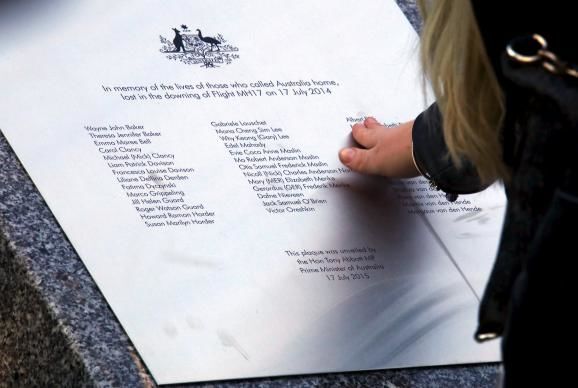 In memory of the lives of those who called Australia home,
lost in the downing of Flight MH17 on 17 July 2014
Wayne John Baker
Theresa Jennifer Baker
Emma Maree Bell
Carol Clancy
Michael (Mick) Clancy
Liam Patrick Davison
Francesca Louise Davison
Liliane Delfina Derden
Fatima Dyczynski
Marco Grippeling
Jill Helen Guard
Roger Watson Guard
Howard Roman Horder
Susan Marilyn Horder
Gabriele Lauschet
Mona Cheng Sim Lee
Why Keong (Gary) Lee
Edel Mahady
Evie Coco Anne Maslin
Mo Robert Anderson Maslin
Otis Samuel Frederick Maslin
Nicoll (Nick) Charles Anderson
Mary (MER) Elizabeth Menke
Gerardus (GER) Frederik Menke
Dafne Nieveen
Jack Samuel O'Brien
Victor Oreshkin
Albert
van den Hende
van den Hende
van den Hende
This plaque was unveiled by
the Hon Tony Abbott MP
Prime Minister of Australia
17 July 2015